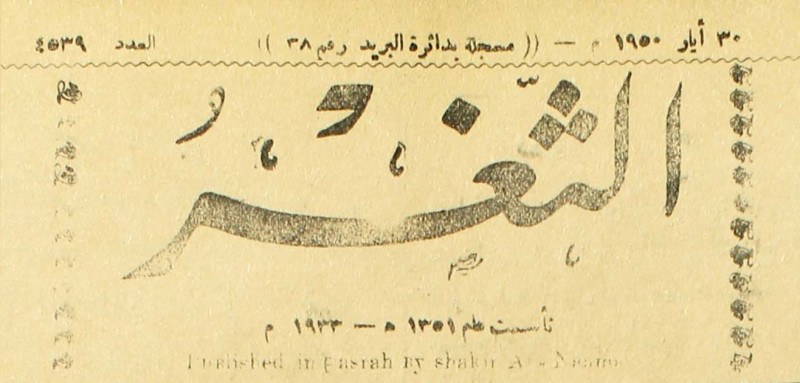 ٣٠ أيار ١٩٥٠ م — (( مسجلة بدائرة البريد رقم ٣٨ )) العدد ٤٥٣٩
الثَّغْرُ
تأسست عام ١٣٥١ ه — ١٩٣٣ م
Published in Basrah By shakir A